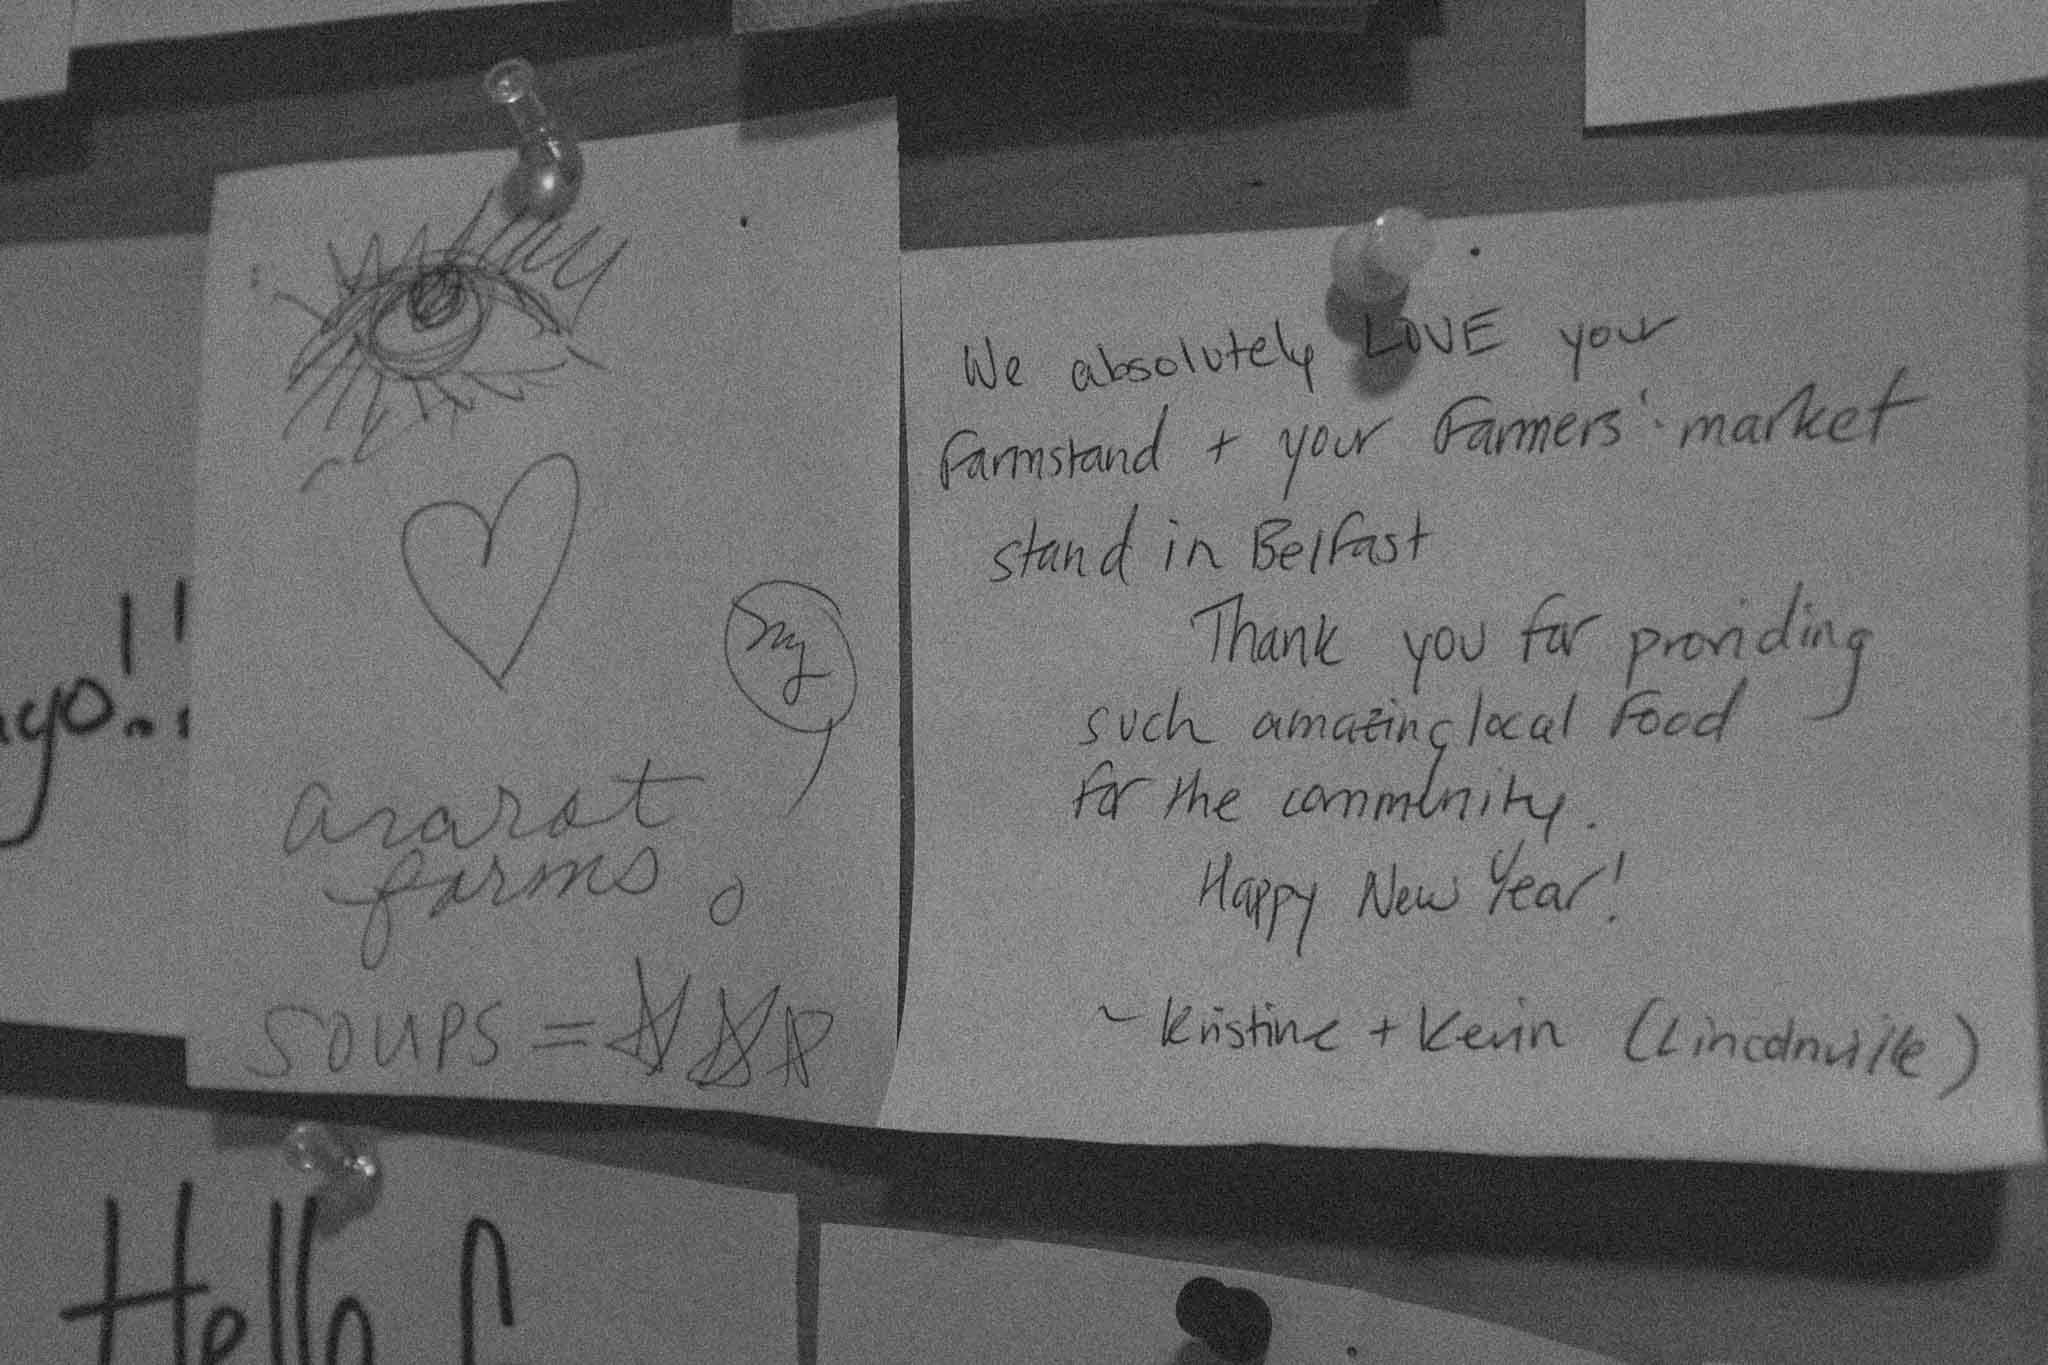 ago!!
my
ararat
farms.
SOUPS =
We absolutely LOVE your
Farmstand + your Farmers' market
stand in Belfast
Thank you for providing
such amazing local Food
for the community.
Happy New Year!
~ Kristine + Kevin (Lincolnville)
Hello